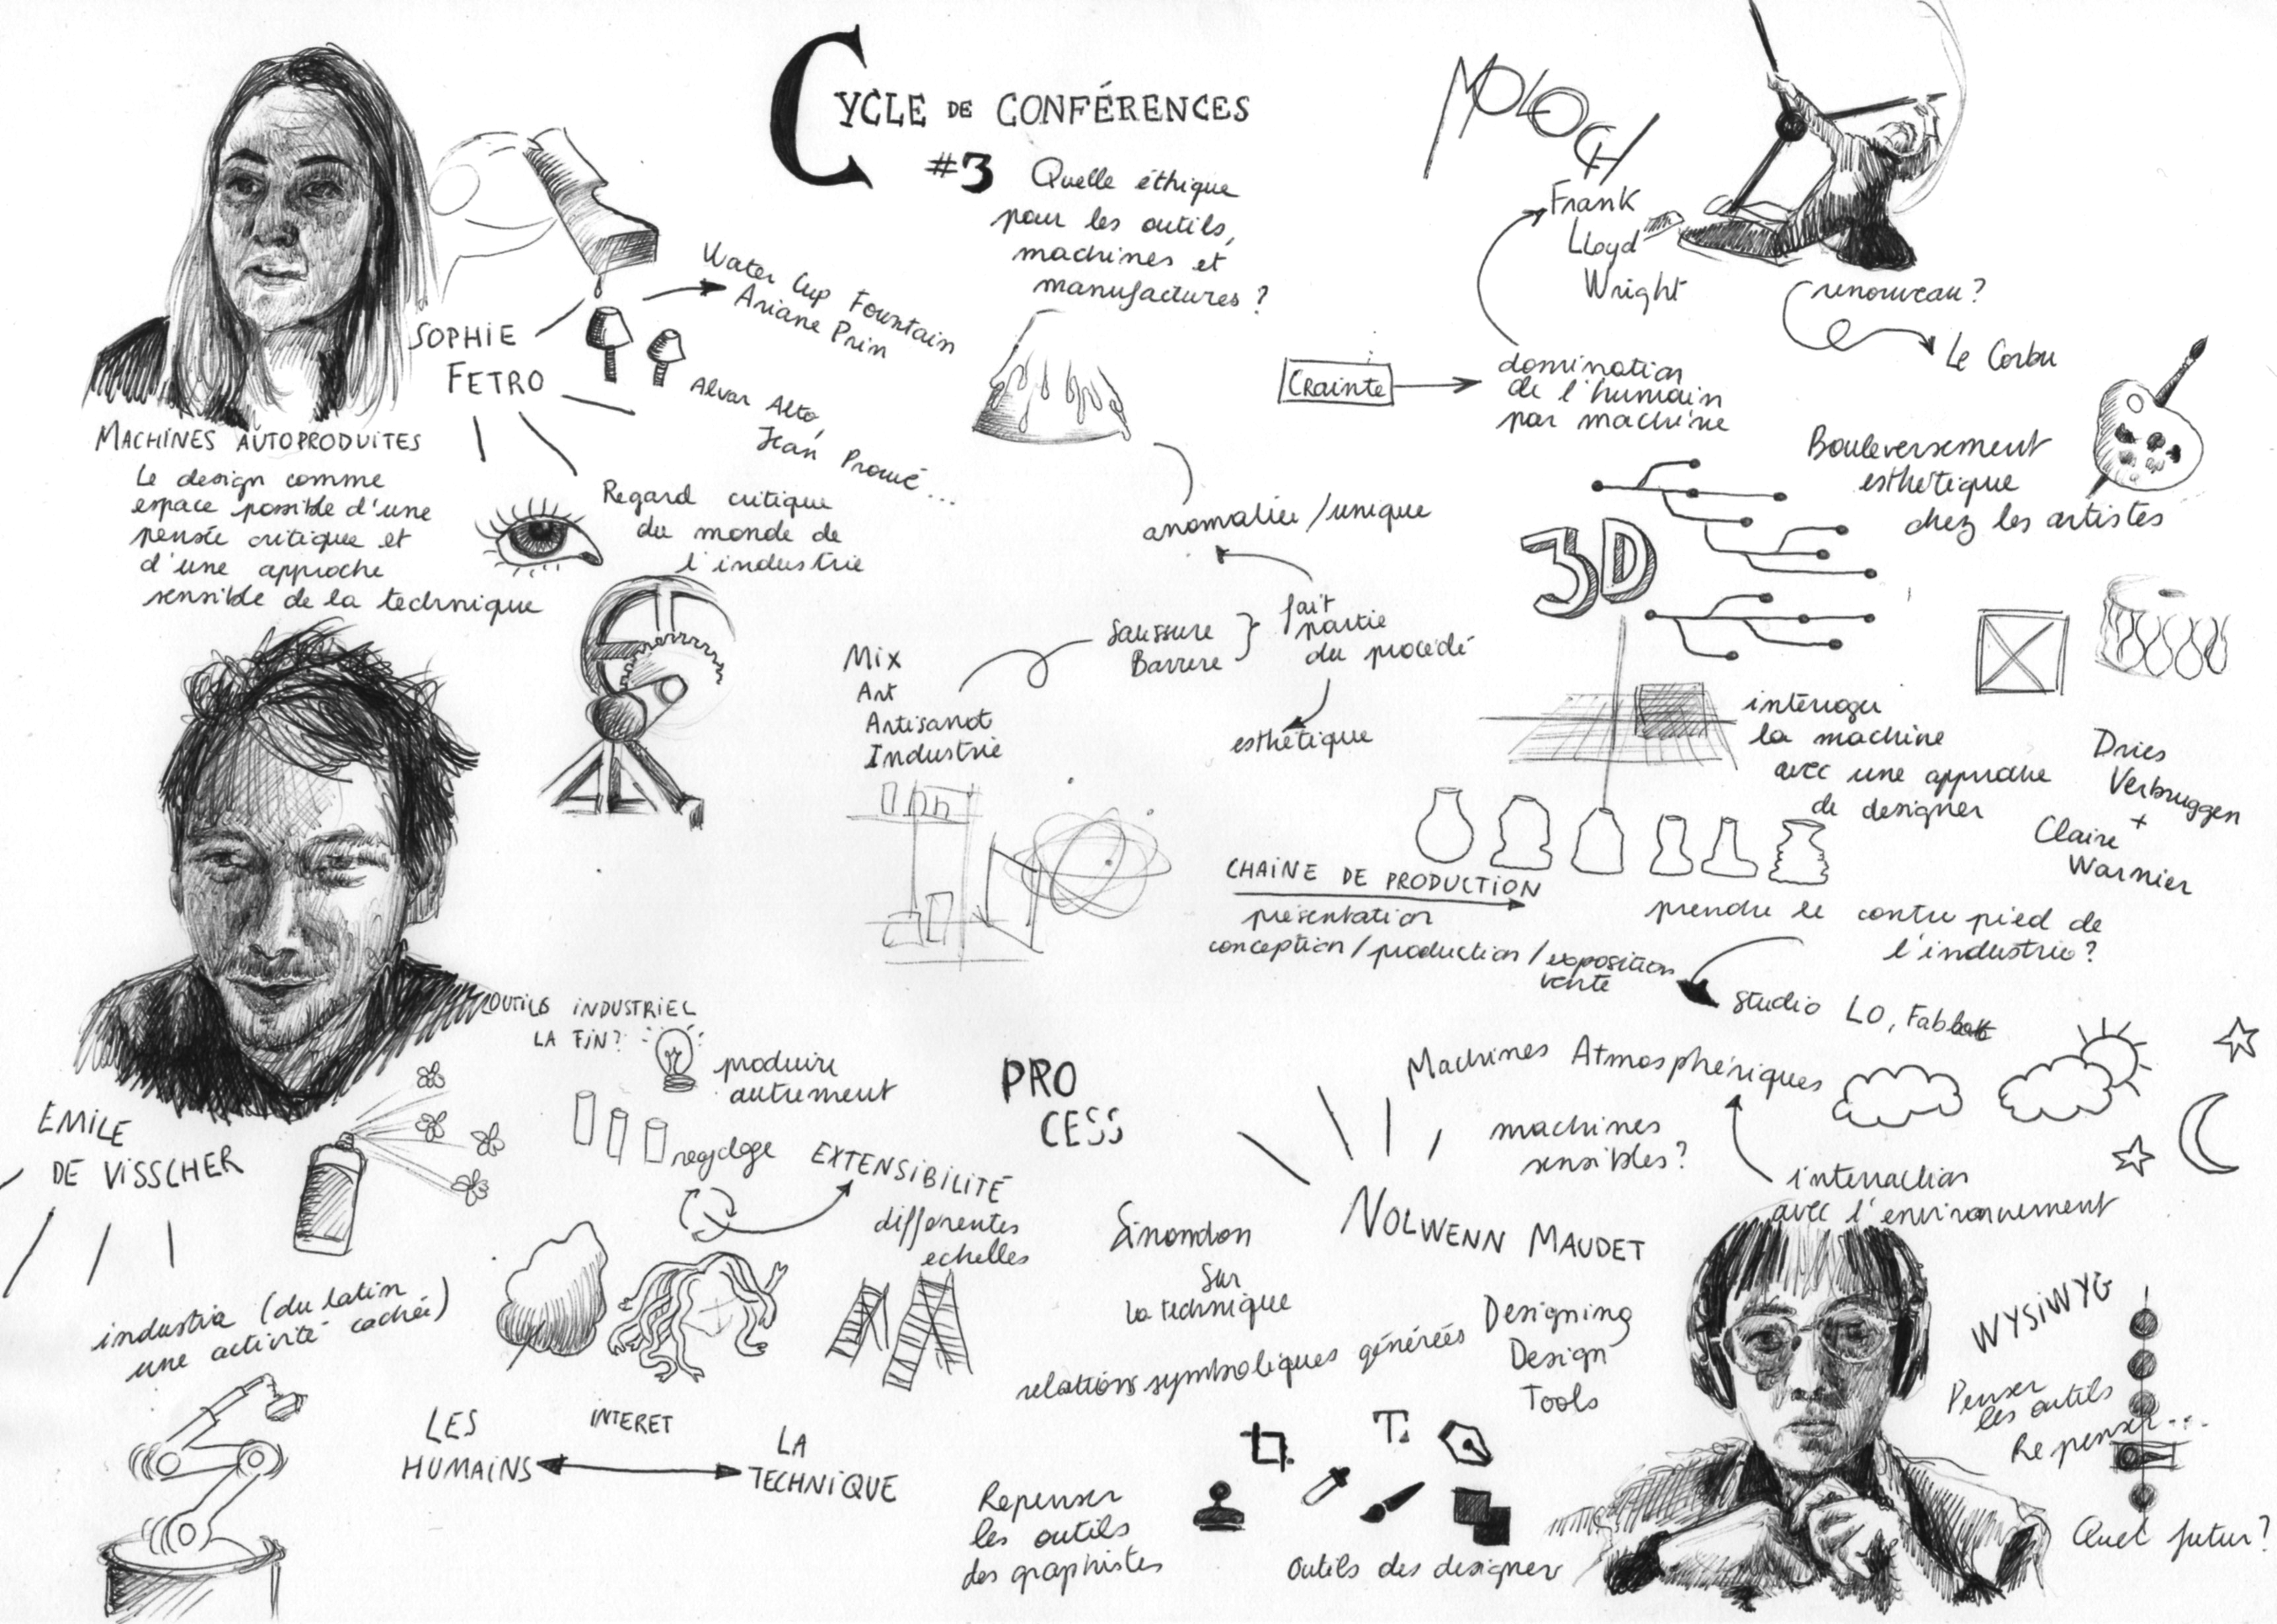 CYCLE DE CONFÉRENCES
#3 Quelle éthique
pour les outils,
machines et
manufactures ?
SOPHIE
FETRO
MACHINES AUTOPRODUITES
Le design comme
espace possible d'une
pensée critique et
d'une approche
sensible de la technique
Water Cup Fountain
Ariane Prin
Alvar Alto,
Jean Prouvé...
Regard critique
du monde de
l'industrie
MOLOCH
Frank
Lloyd
Wright
renouveau ?
Le Corbu
Crainte
domination
de l'humain
par machine
Bouleversement
esthétique
chez les artistes
anomalie/unique
Mix
Art
Artisanat
Industrie
Saussure
Barrere
fait
partie
du procédé
esthétique
3D
interroger
la machine
avec une approche
de designer
Dries
Verbruggen
+
Claire
Warnier
CHAINE DE PRODUCTION
présentation
conception/production/exposition
vente
prendre le contre pied de
l'industrie ?
Studio LO,
EMILE
DE VISSCHER
OUTILS INDUSTRIEL
LA FIN ?
produire
autrement
recyclage
EXTENSIBILITÉ
différentes
echelles
industria (du latin
une activité cachée)
LES
HUMAINS
INTERET
LA
TECHNIQUE
PRO
CESS
Machines Atmosphériques
machines
sensibles ?
interaction
avec l'environnement
NOLWENN MAUDET
Simondon
Sur
la technique
relations symboliques générées
Designing
Design
Tools
WYSIWYG
Penser
les outils
Repenser...
Quel futur ?
Repenser
les outils
des graphistes
T.
Outils des designer